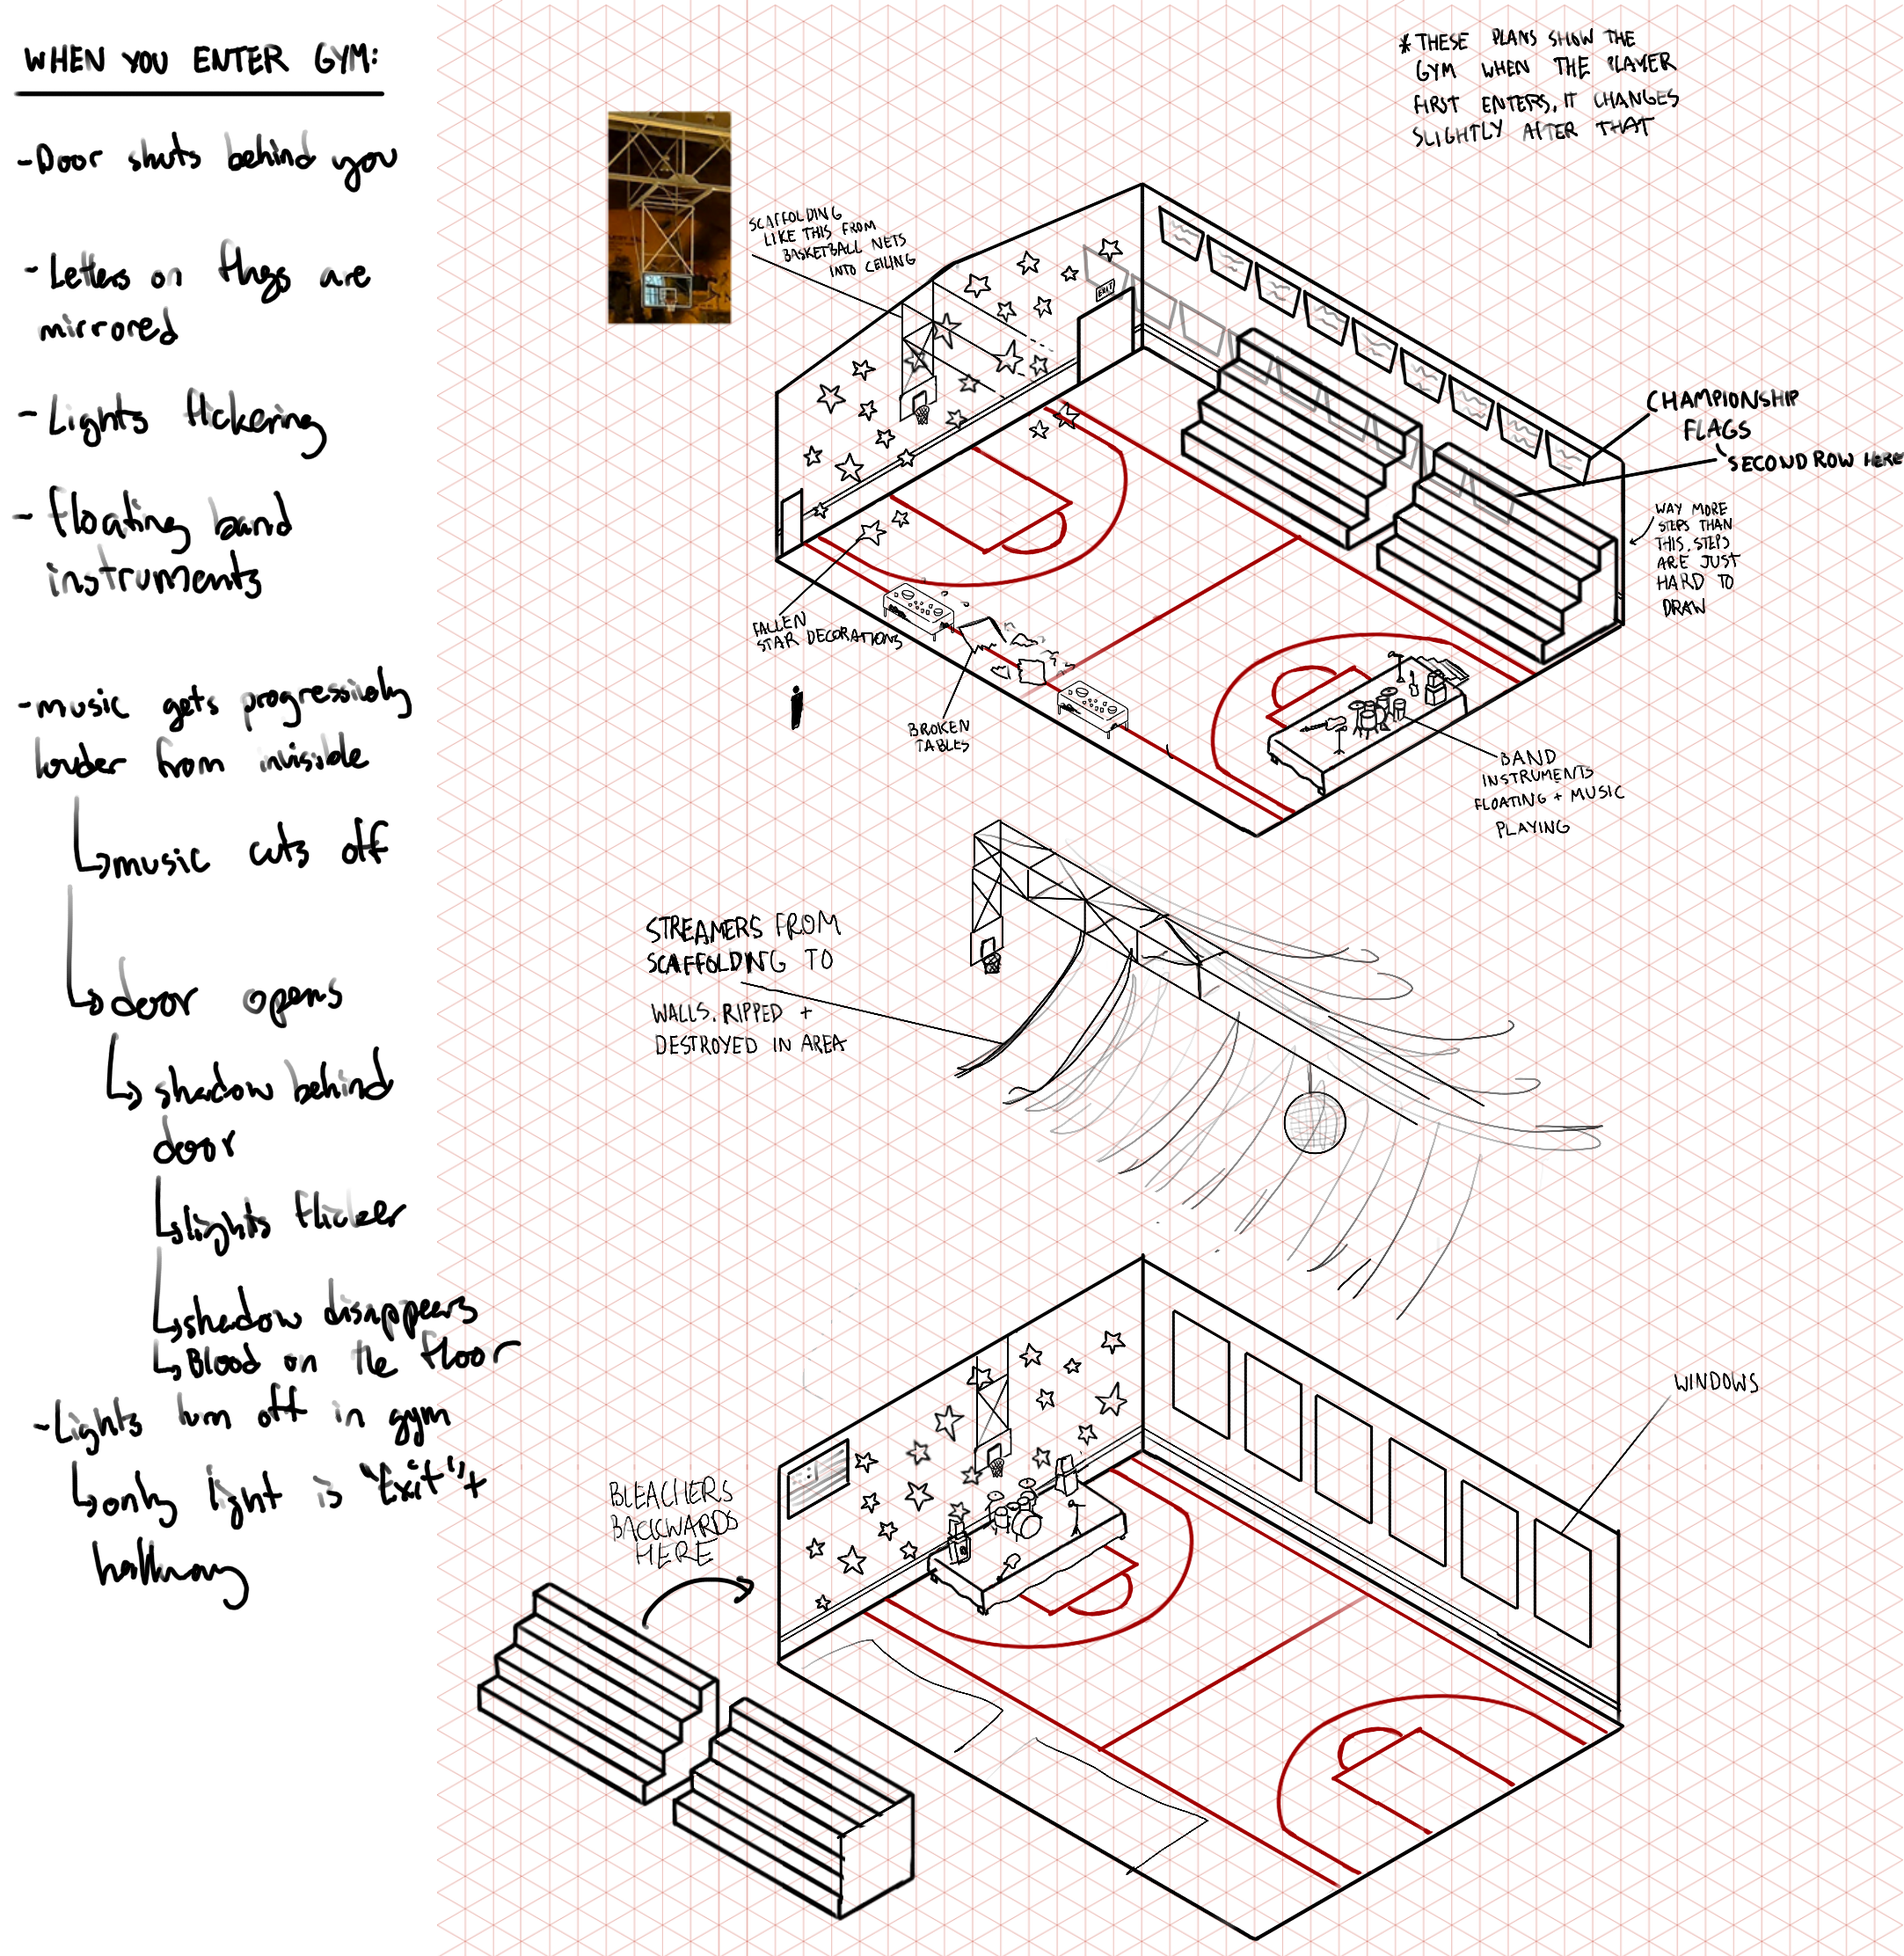 WHEN YOU ENTER GYM:
-Door shuts behind you
-Letters on flags are
mirrored
-Lights flickering
-floating band
instruments
-music gets progressively
louder from invisible
↳music cuts off
↳door opens
↳shadow behind
door
↳lights flicker
↳shadow disappears
↳Blood on the floor
-Lights turn off in gym
↳only light is "Exit" +
hallway
*THESE PLANS SHOW THE
GYM WHEN THE PLAYER
FIRST ENTERS, IT CHANGES
SLIGHTLY AFTER THAT
SCAFFOLDING
LIKE THIS FROM
BASKETBALL NETS
INTO CEILING
EXIT
CHAMPIONSHIP
FLAGS
SECOND ROW HERE
WAY MORE
STEPS THAN
THIS. STEPS
ARE JUST
HARD TO
DRAW
FALLEN
STAR DECORATIONS
BROKEN
TABLES
BAND
INSTRUMENTS
FLOATING + MUSIC
PLAYING
STREAMERS FROM
SCAFFOLDING TO
WALLS. RIPPED +
DESTROYED IN AREA
WINDOWS
BLEACHERS
BACKWARDS
HERE